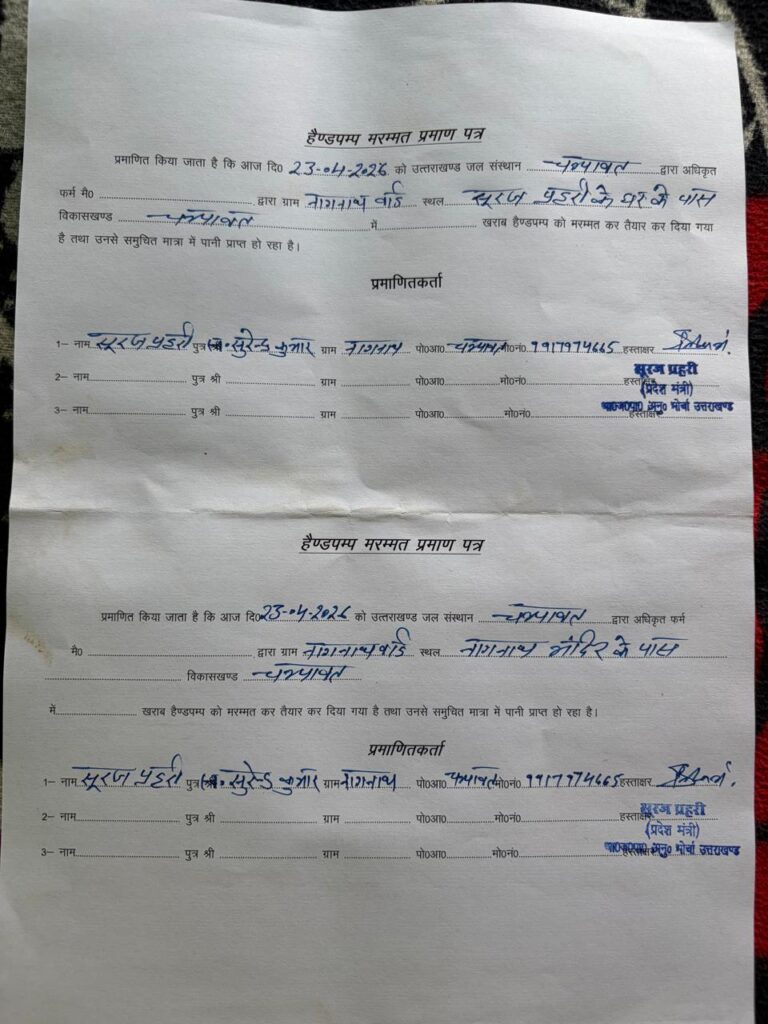 हैण्डपम्प मरम्मत प्रमाण पत्र
प्रमाणित किया जाता है कि आज दि0 23-04-2026 को उत्तराखण्ड जल संस्थान चम्पावत द्वारा अधिकृत
फर्म मै0 द्वारा ग्राम नागनाथ वार्ड स्थल सूरज प्रहरी के घर के पास
विकासखण्ड चम्पावत में खराब हैण्डपम्प को मरम्मत कर तैयार कर दिया गया
है तथा उनसे समुचित मात्रा में पानी प्राप्त हो रहा है।
प्रमाणितकर्ता
1– नाम सूरज प्रहरी पुत्र सुरेन्द्र कुमार ग्राम नागनाथ पो0आ0 चम्पावत मो0नं0 7917974665 हस्ताक्षर
2– नाम पुत्र श्री ग्राम पो0आ0 मो0नं0 हस्ताक्षर
3– नाम पुत्र श्री ग्राम पो0आ0 मो0नं0 हस्ताक्षर
सूरज प्रहरी
(प्रदेश मंत्री)
भा0ज0पा0 अनु0 मोर्चा उत्तराखण्ड
हैण्डपम्प मरम्मत प्रमाण पत्र
प्रमाणित किया जाता है कि आज दि0 23-04-2026 को उत्तराखण्ड जल संस्थान चम्पावत द्वारा अधिकृत फर्म
मै0 द्वारा ग्राम नागनाथ वार्ड स्थल नागनाथ मंदिर के पास
विकासखण्ड चम्पावत
में खराब हैण्डपम्प को मरम्मत कर तैयार कर दिया गया है तथा उनसे समुचित मात्रा में पानी प्राप्त हो रहा है।
प्रमाणितकर्ता
1– नाम सूरज प्रहरी पुत्र सुरेन्द्र कुमार ग्राम नागनाथ पो0आ0 चम्पावत मो0नं0 7917974665 हस्ताक्षर
2– नाम पुत्र श्री ग्राम पो0आ0 मो0नं0 हस्ताक्षर
3– नाम पुत्र श्री ग्राम पो0आ0 मो0नं0 हस्ताक्षर
सूरज प्रहरी
(प्रदेश मंत्री)
भा0ज0पा0 अनु0 मोर्चा उत्तराखण्ड